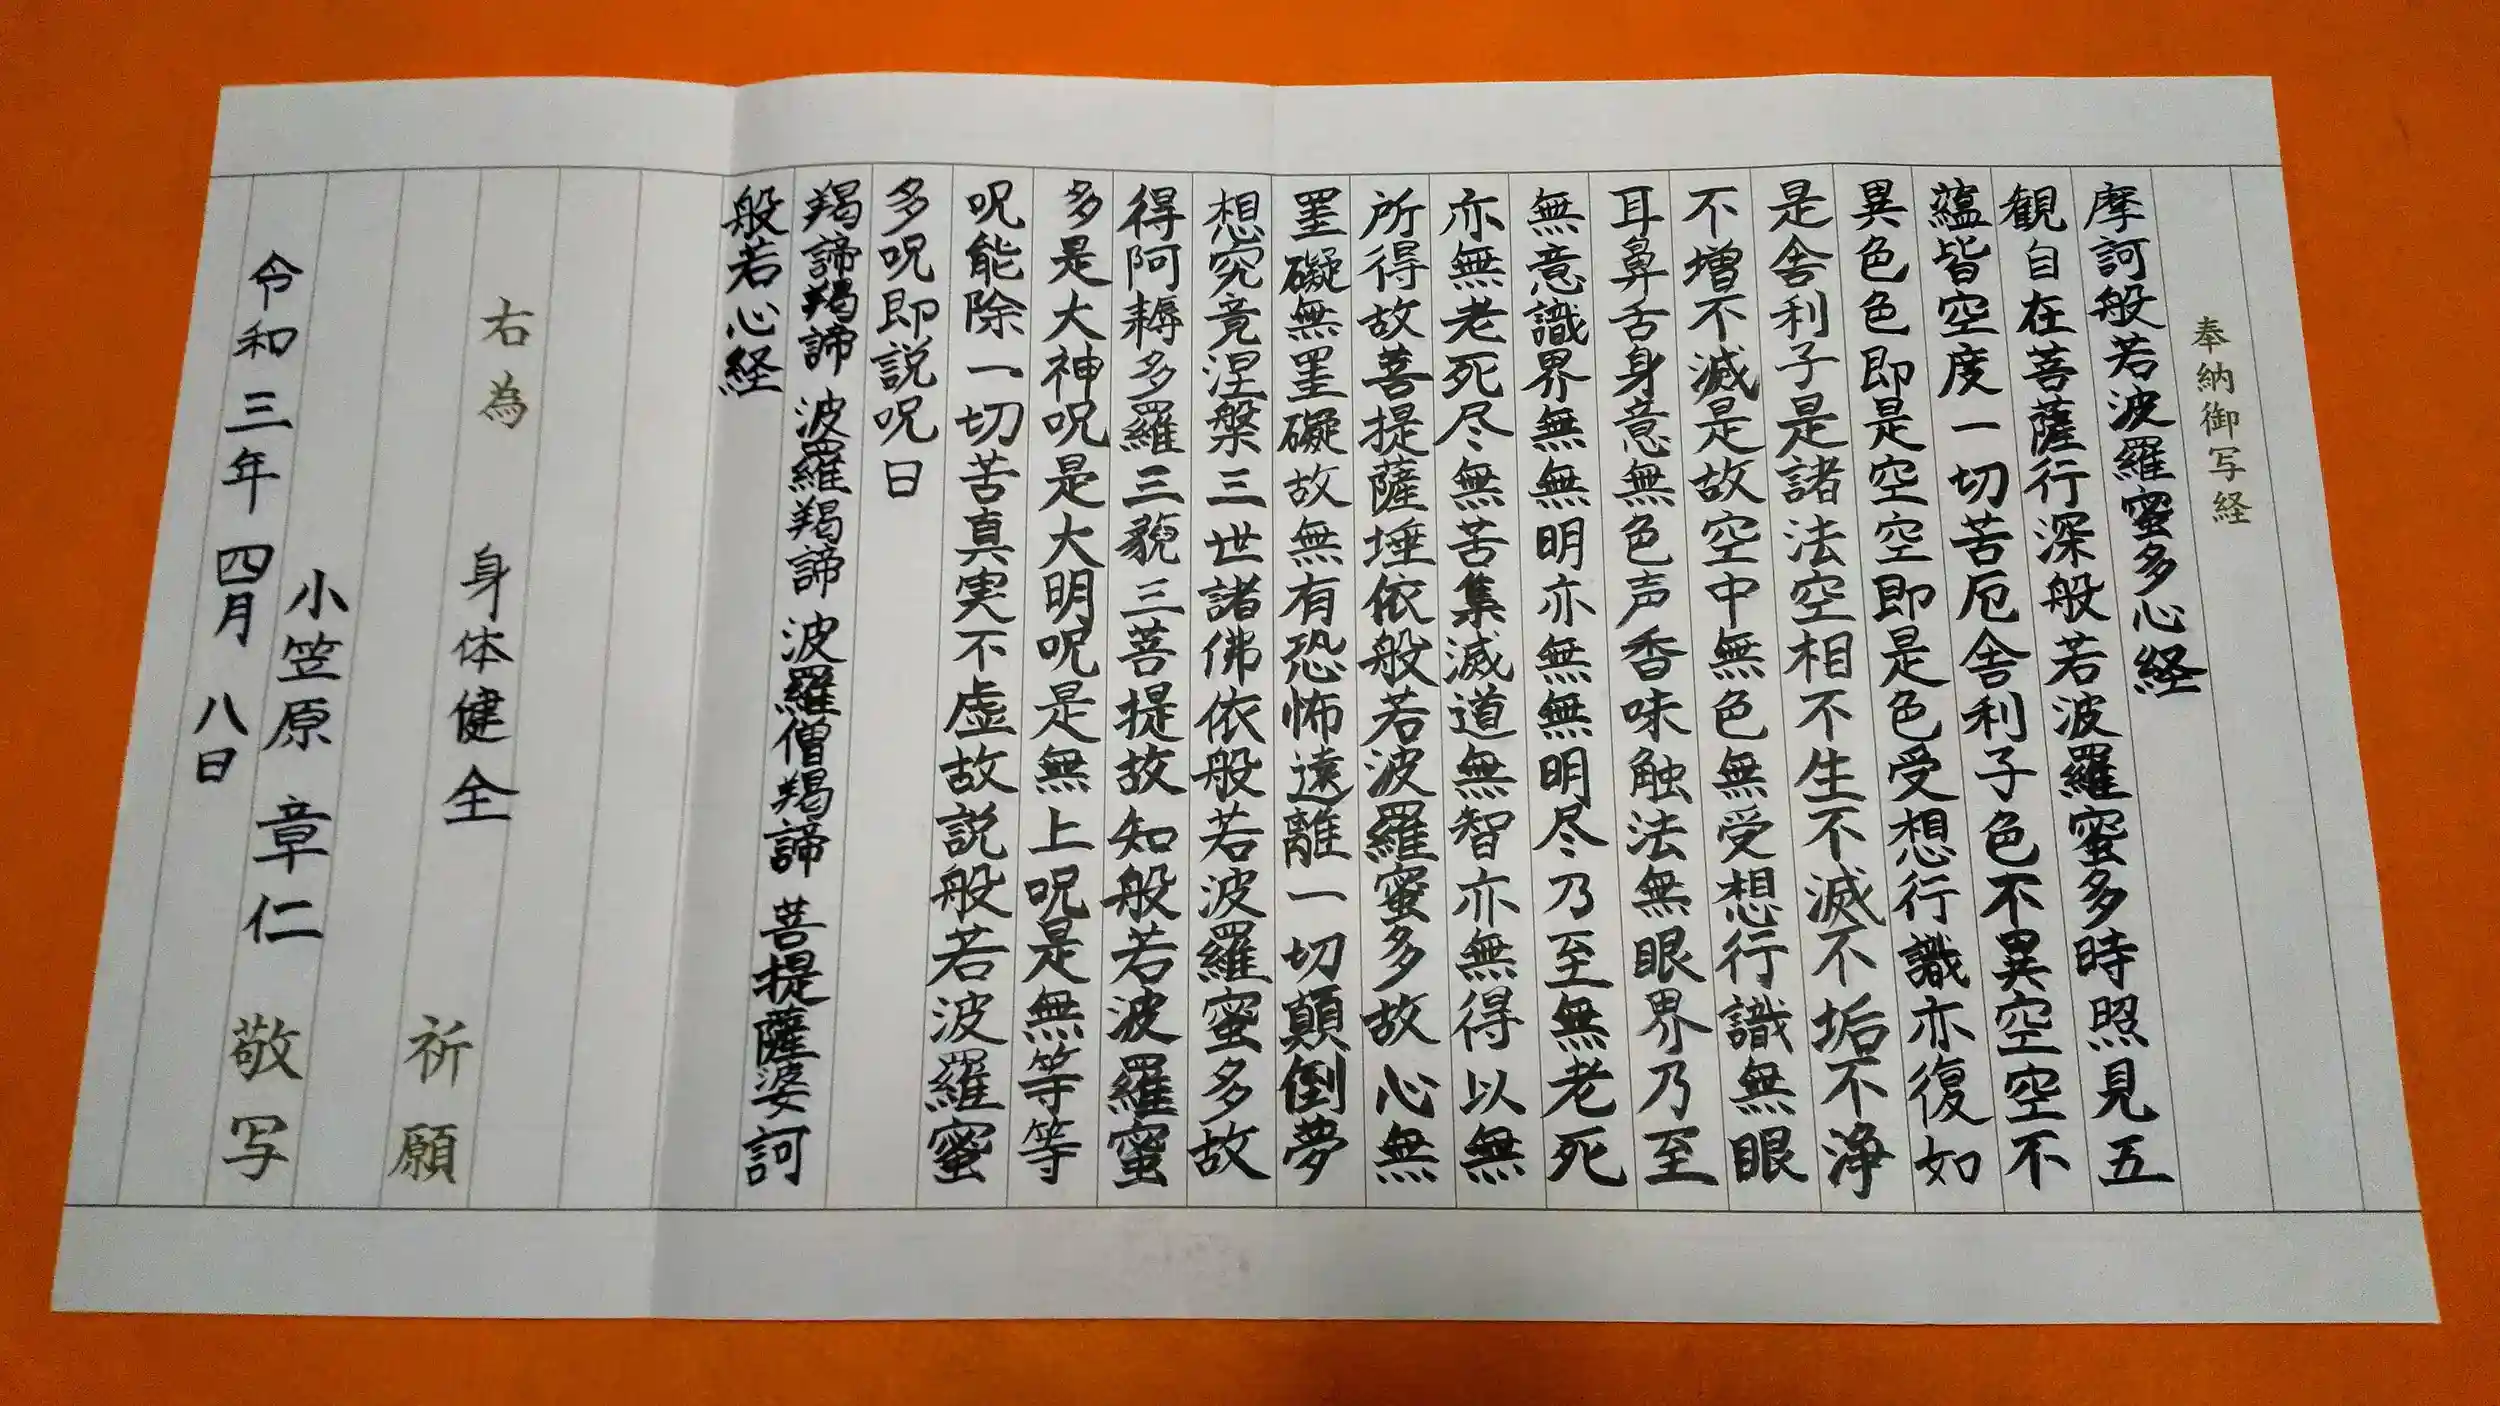 奉納御写経
摩訶般若波羅蜜多心経
観自在菩薩行深般若波羅蜜多時照見五
蘊皆空度一切苦厄舎利子色不異空空不
異色色即是空空即是色受想行識亦復如
是舎利子是諸法空相不生不滅不垢不浄
不増不滅是故空中無色無受想行識無眼
耳鼻舌身意無色声香味触法無眼界乃至
無意識界無無明亦無無明尽乃至無老死
亦無老死尽無苦集滅道無智亦無得以無
所得故菩提薩埵依般若波羅蜜多故心無
罣礙無罣礙故無有恐怖遠離一切顛倒夢
想究竟涅槃三世諸佛依般若波羅蜜多故
得阿耨多羅三藐三菩提故知般若波羅蜜
多是大神呪是大明呪是無上呪是無等等
呪能除一切苦真実不虚故説般若波羅蜜
多呪即説呪曰
羯諦羯諦 波羅羯諦 波羅僧羯諦 菩提薩婆訶
般若心経
右為 身体健全
祈願
小笠原 章仁 敬写
令和三年四月八日